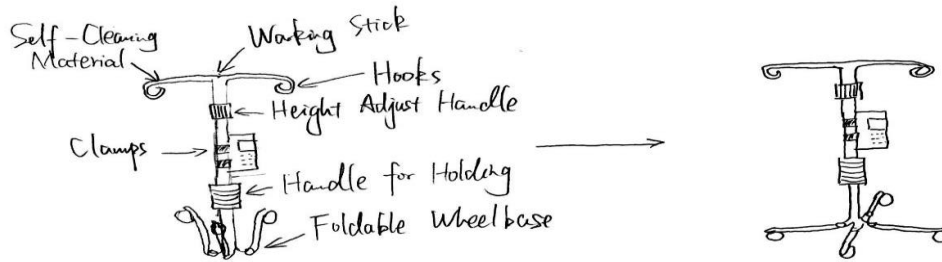 Self-Cleaning
Material
Walking Stick
Hooks
Height Adjust Handle
Clamps
Handle for Holding
Foldable Wheelbase